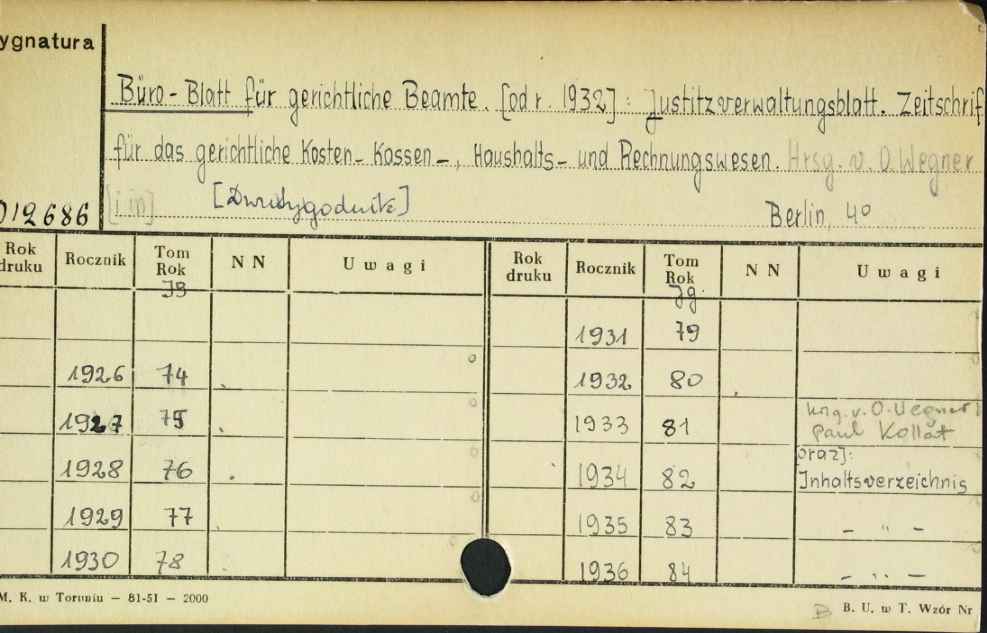 ygnatura
Büro-Blatt für gerichtliche Beamte. [od r. 1932]: Justitzverwaltungsblatt. Zeitschrif
für das gerichtliche Kosten-Kassen-, Haushalts- und Rechnungswesen. Hrsg. v. O. Wegner
012686 [i in] [Dwutygodnik] Berlin, 4º
Rok druku Rocznik Tom Rok NN Uwagi Rok druku Rocznik Tom Rok NN Uwagi
Jg Jg.
1931 79
1926 74 1932 80
1927 75 1933 81 Hrsg. v. O. Wegner i Paul Kollat
1928 76 1934 82 oraz]: Inhaltsverzeichnis
1929 77 1935 83 - " -
1930 78 1936 84 - " -
M. K. w Toruniu — 81-51 — 2000
B. U. w T. Wzór Nr